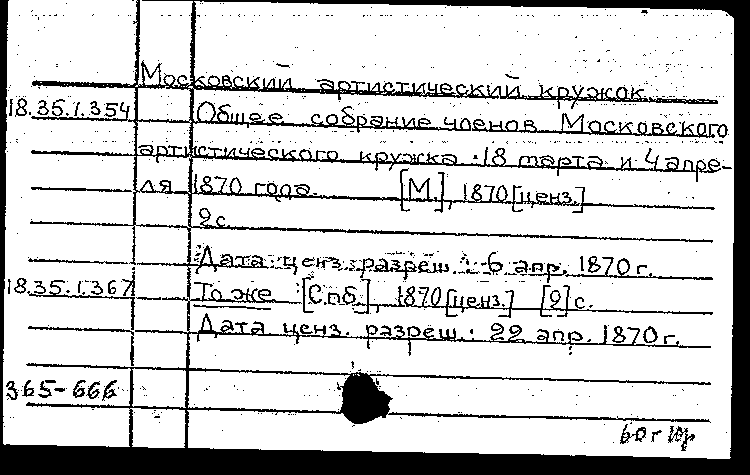 Московский артистический кружок
18.35.1.354 Общее собрание членов Московского
артистического кружка 18 марта и 4 апре-
ля 1870 года. [М.], 1870 [ценз.]
2 с.
Дата ценз. разреш.: 6 апр. 1870 г.
18.35.1.367 То же [Спб.], 1870 [ценз.] [2] с.
Дата ценз. разреш.: 22 апр. 1870 г.
365-666
60 г